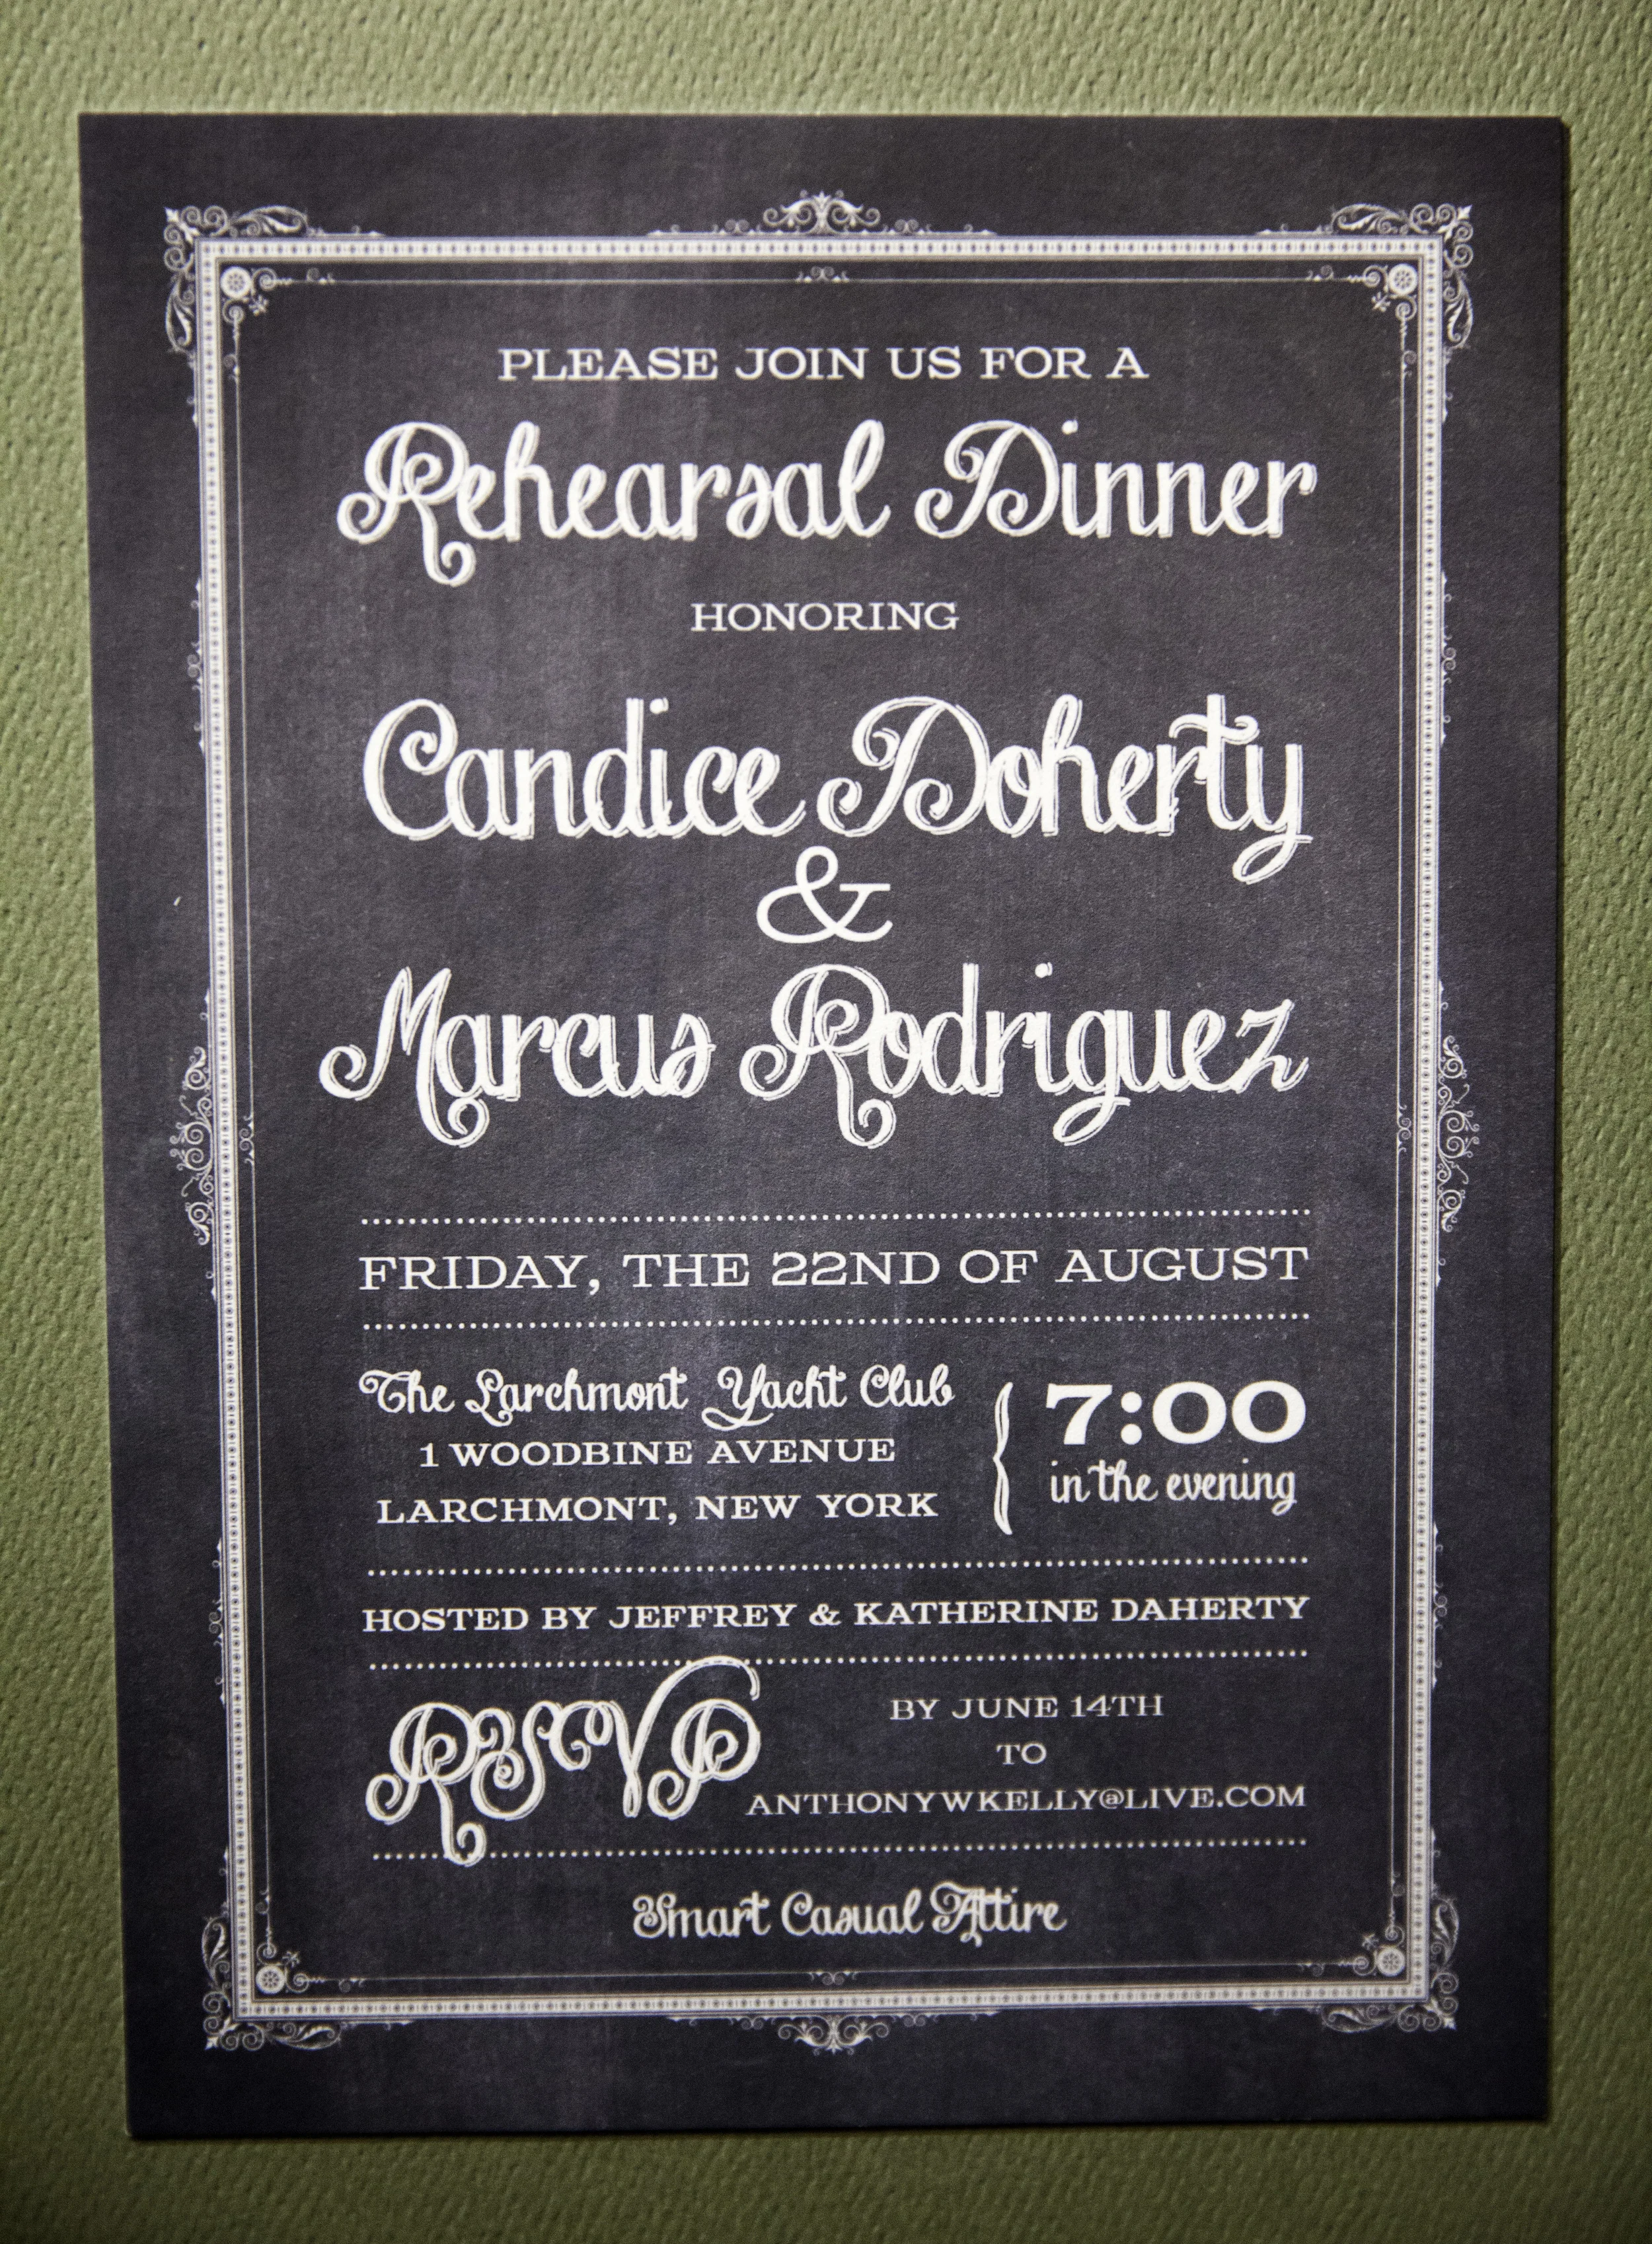 PLEASE JOIN US FOR A
Rehearsal Dinner
HONORING
Candice Doherty
&
Marcus Rodriguez
FRIDAY, THE 22ND OF AUGUST
The Larchmont Yacht Club
1 WOODBINE AVENUE
LARCHMONT, NEW YORK
{ 7:00
in the evening
HOSTED BY JEFFREY & KATHERINE DAHERTY
RSVP
BY JUNE 14TH
TO
ANTHONYWKELLY@LIVE.COM
Smart Casual Attire